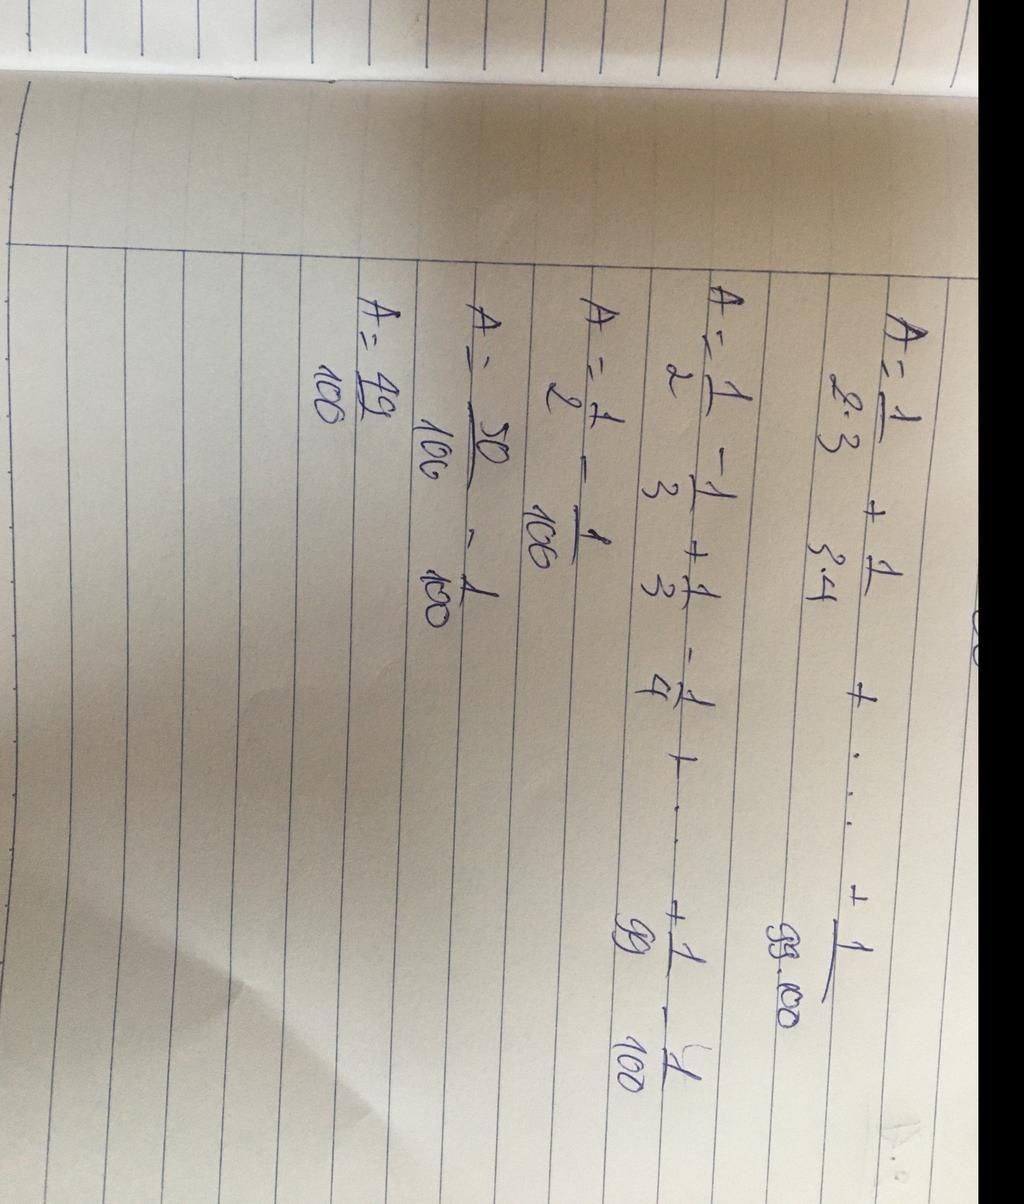 A = 1/2.3 + 1/3.4 + .... + 1/99.100
A = 1/2 - 1/3 + 1/3 - 1/4 + ... + 1/99 - 1/100
A = 1/2 - 1/100
A = 50/100 - 1/100
A = 49/100